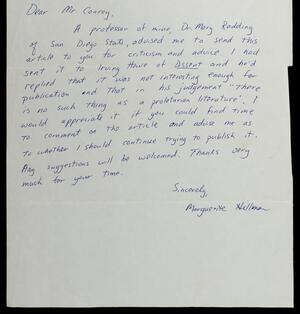 Dear Mr. Conroy,
A professor of mine, Dr. Mary Redding
of San Diego State, advised me to send this
article to you for criticism and advice. I had
sent it to Irving Howe of Dissent and he'd
replied that it was not interesting enough for
publication and that in his judgement "there
is no such thing as a proletarian literature". I
would appreciate it if you could find time
to comment on the article and advise me as
to whether I should continue trying to publish it.
Any suggestions will be welcomed. Thanks very
much for your time.
Sincerely,
Marguerite Hellman